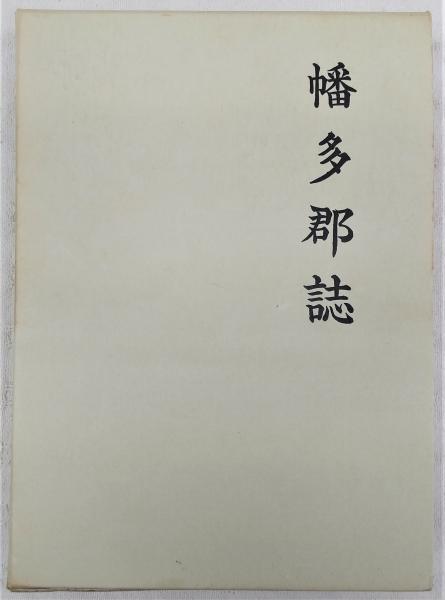 幡多郡誌